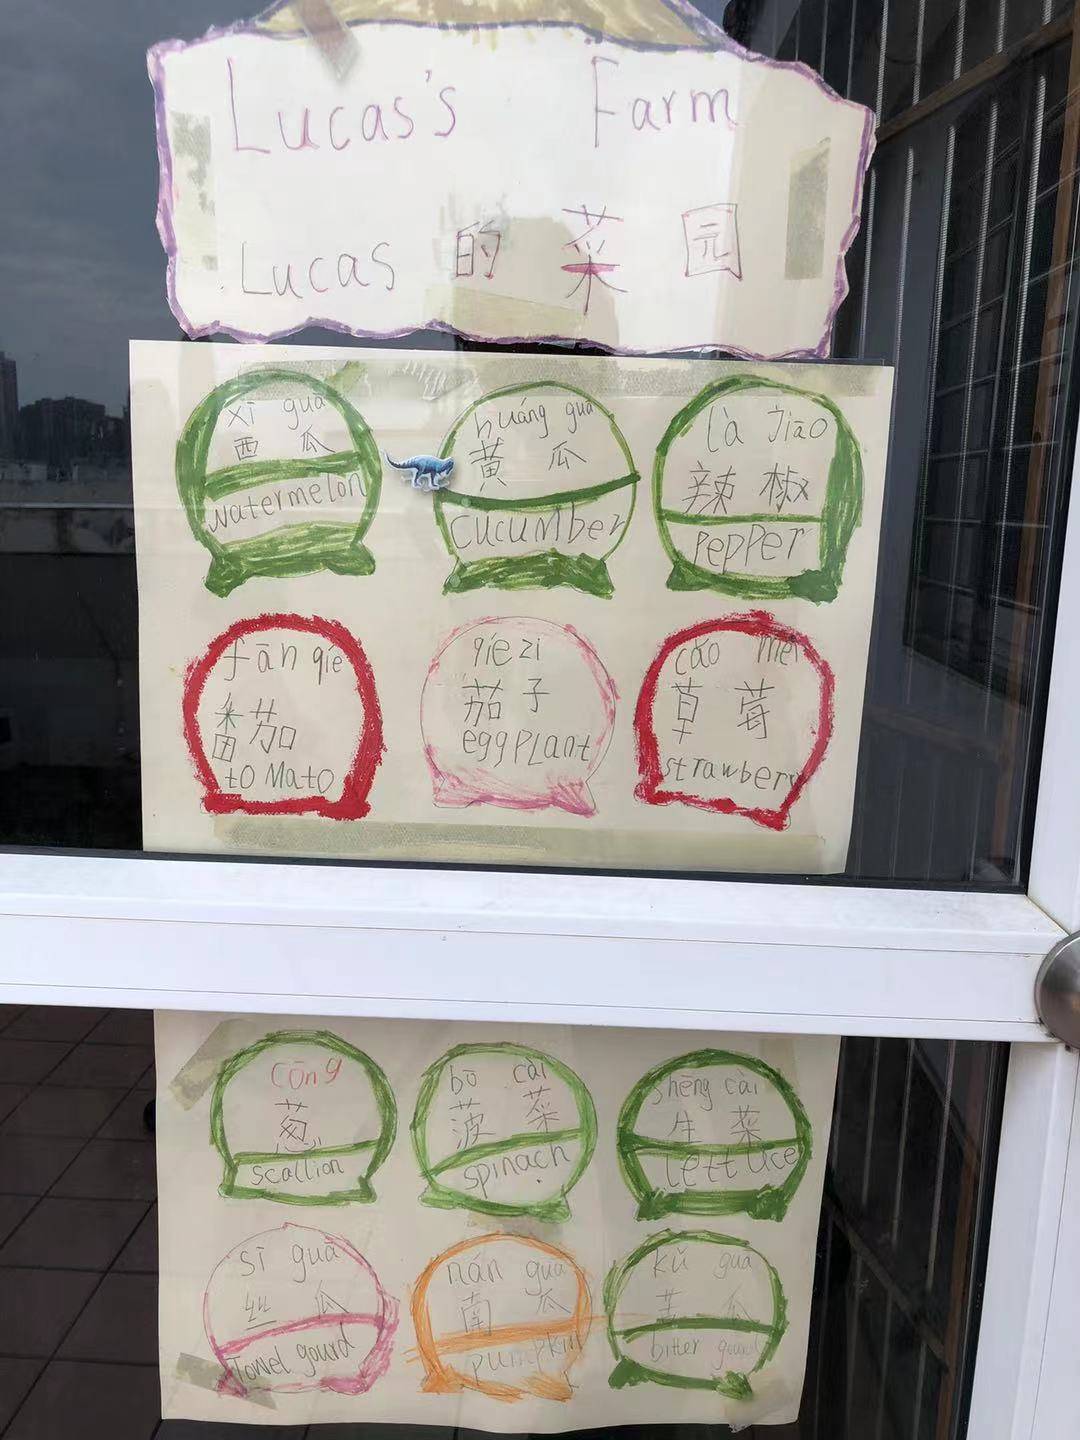 Lucas's Farm
Lucas 的 菜 园
xī guā
西 瓜
watermelon
huáng guā
黄 瓜
cucumber
là Jiāo
辣 椒
pepper
fān qié
番茄
toMato
qié zi
茄 子
eggPLant
cǎo méi
草 莓
strawberry
cōng
葱
scallion
bō cài
菠 菜
spinach
shēng cài
生 菜
Lettuce
sī guā
丝 瓜
Towel gourd
nán guā
南 瓜
pumpkin
kǔ guā
苦 瓜
bitter gourd